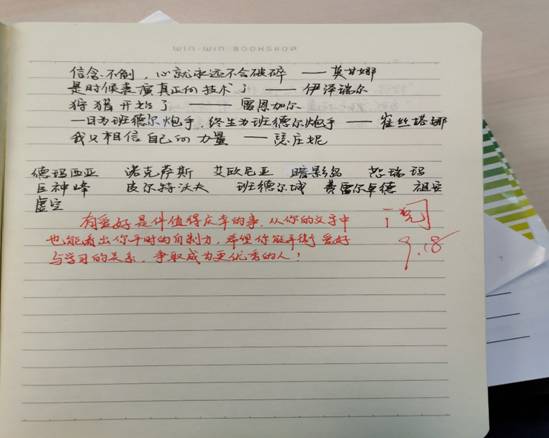 信念不倒，心就永远不会破碎 —— 莫甘娜
是时候表演真正的技术了 —— 伊泽瑞尔
狩猎开始了 —— 雷恩加尔
一日为班德尔炮手，终生为班德尔炮手 —— 崔丝塔娜
我只相信自己的力量 —— 瑟庄妮
德玛西亚 诺克萨斯 艾欧尼亚 暗影岛 恕瑞玛
巨神峰 皮尔特沃夫 班德尔城 费雷尔卓德 祖安
虚空
有爱好是件值得庆幸的事，从你的文字中
也能看出你平时的自制力，希望你能平衡爱好
与学习的关系，争取成为更优秀的人！
阅
9.18